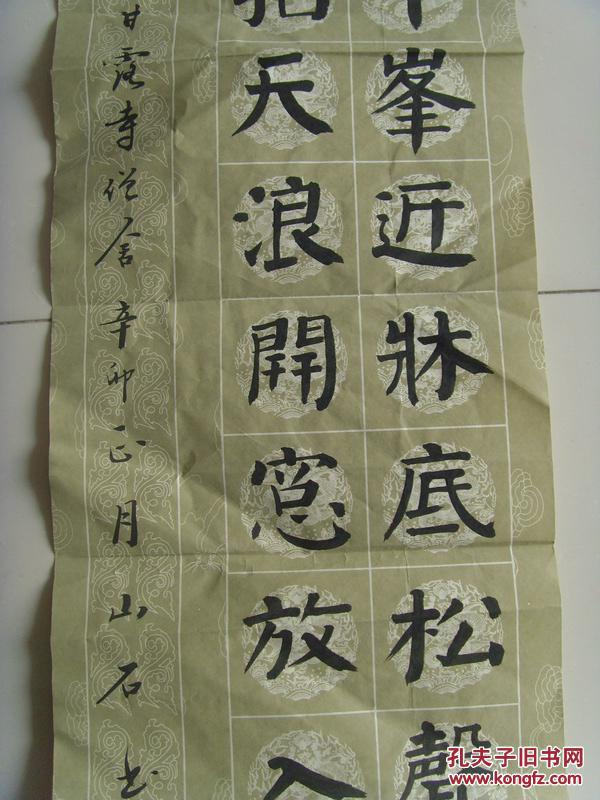 千峯近牀底松聲
拍天浪開窓放入
甘露寺僧舍辛卯正月山石书
孔夫子旧书网
www.kongfz.com